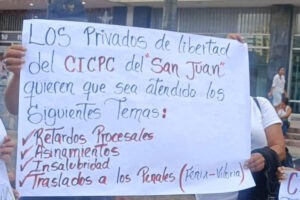 LOS Privados de libertad
del CICPC del "San Juan"
quieren que sea atendido los
Siguientes Temas:
✓ Retardos Procesales
✓ Asinamientos
✓ Insalubridad
✓ Traslados a los Penales (Fénix-Vitoria)